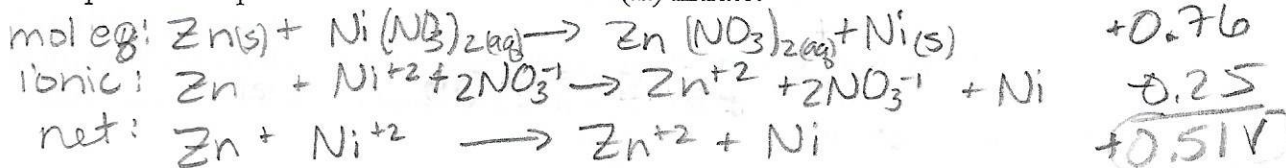 mol eq: Zn(s) + Ni(NO3)2(aq) → Zn(NO3)2(aq) + Ni(s) +0.76
ionic: Zn + Ni+2 + 2NO3-1 → Zn+2 + 2NO3-1 + Ni -0.25
net: Zn + Ni+2 → Zn+2 + Ni +0.51V